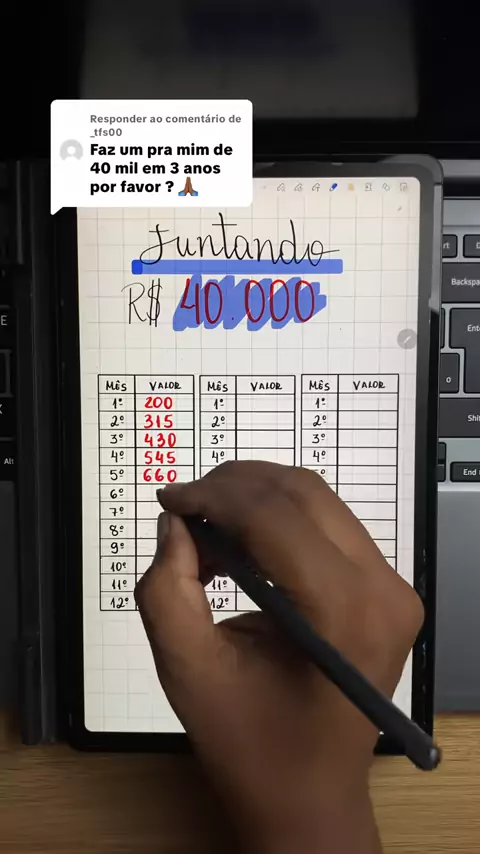 Responder ao comentário de
_tfs00
Faz um pra mim de
40 mil em 3 anos
por favor ? 🙏🏾
Juntando
R$ 40.000
MÊS VALOR MÊS VALOR MÊS VALOR
1º 200 1º 1º
2º 315 2º 2º
3º 430 3º 3º
4º 545 4º 4º
5º 660
6º
7º
8º
9º
10º
11º 11º
12º 12º
Backspa
Ente
Shi
End
Alt
E